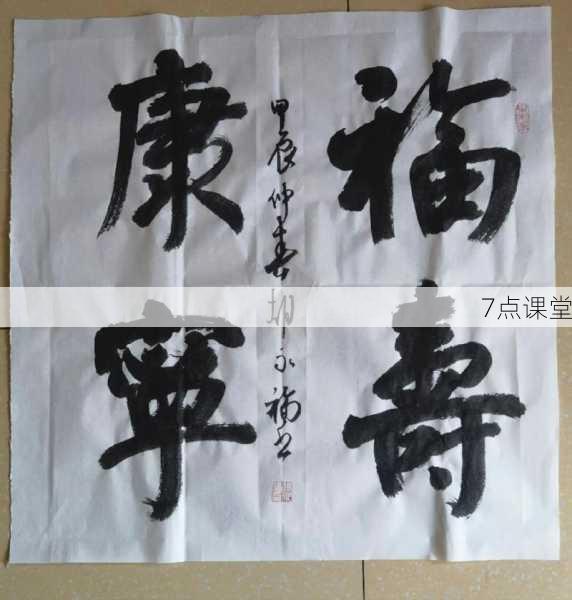 福壽
康寧
甲辰仲春胡永福書
7点课堂